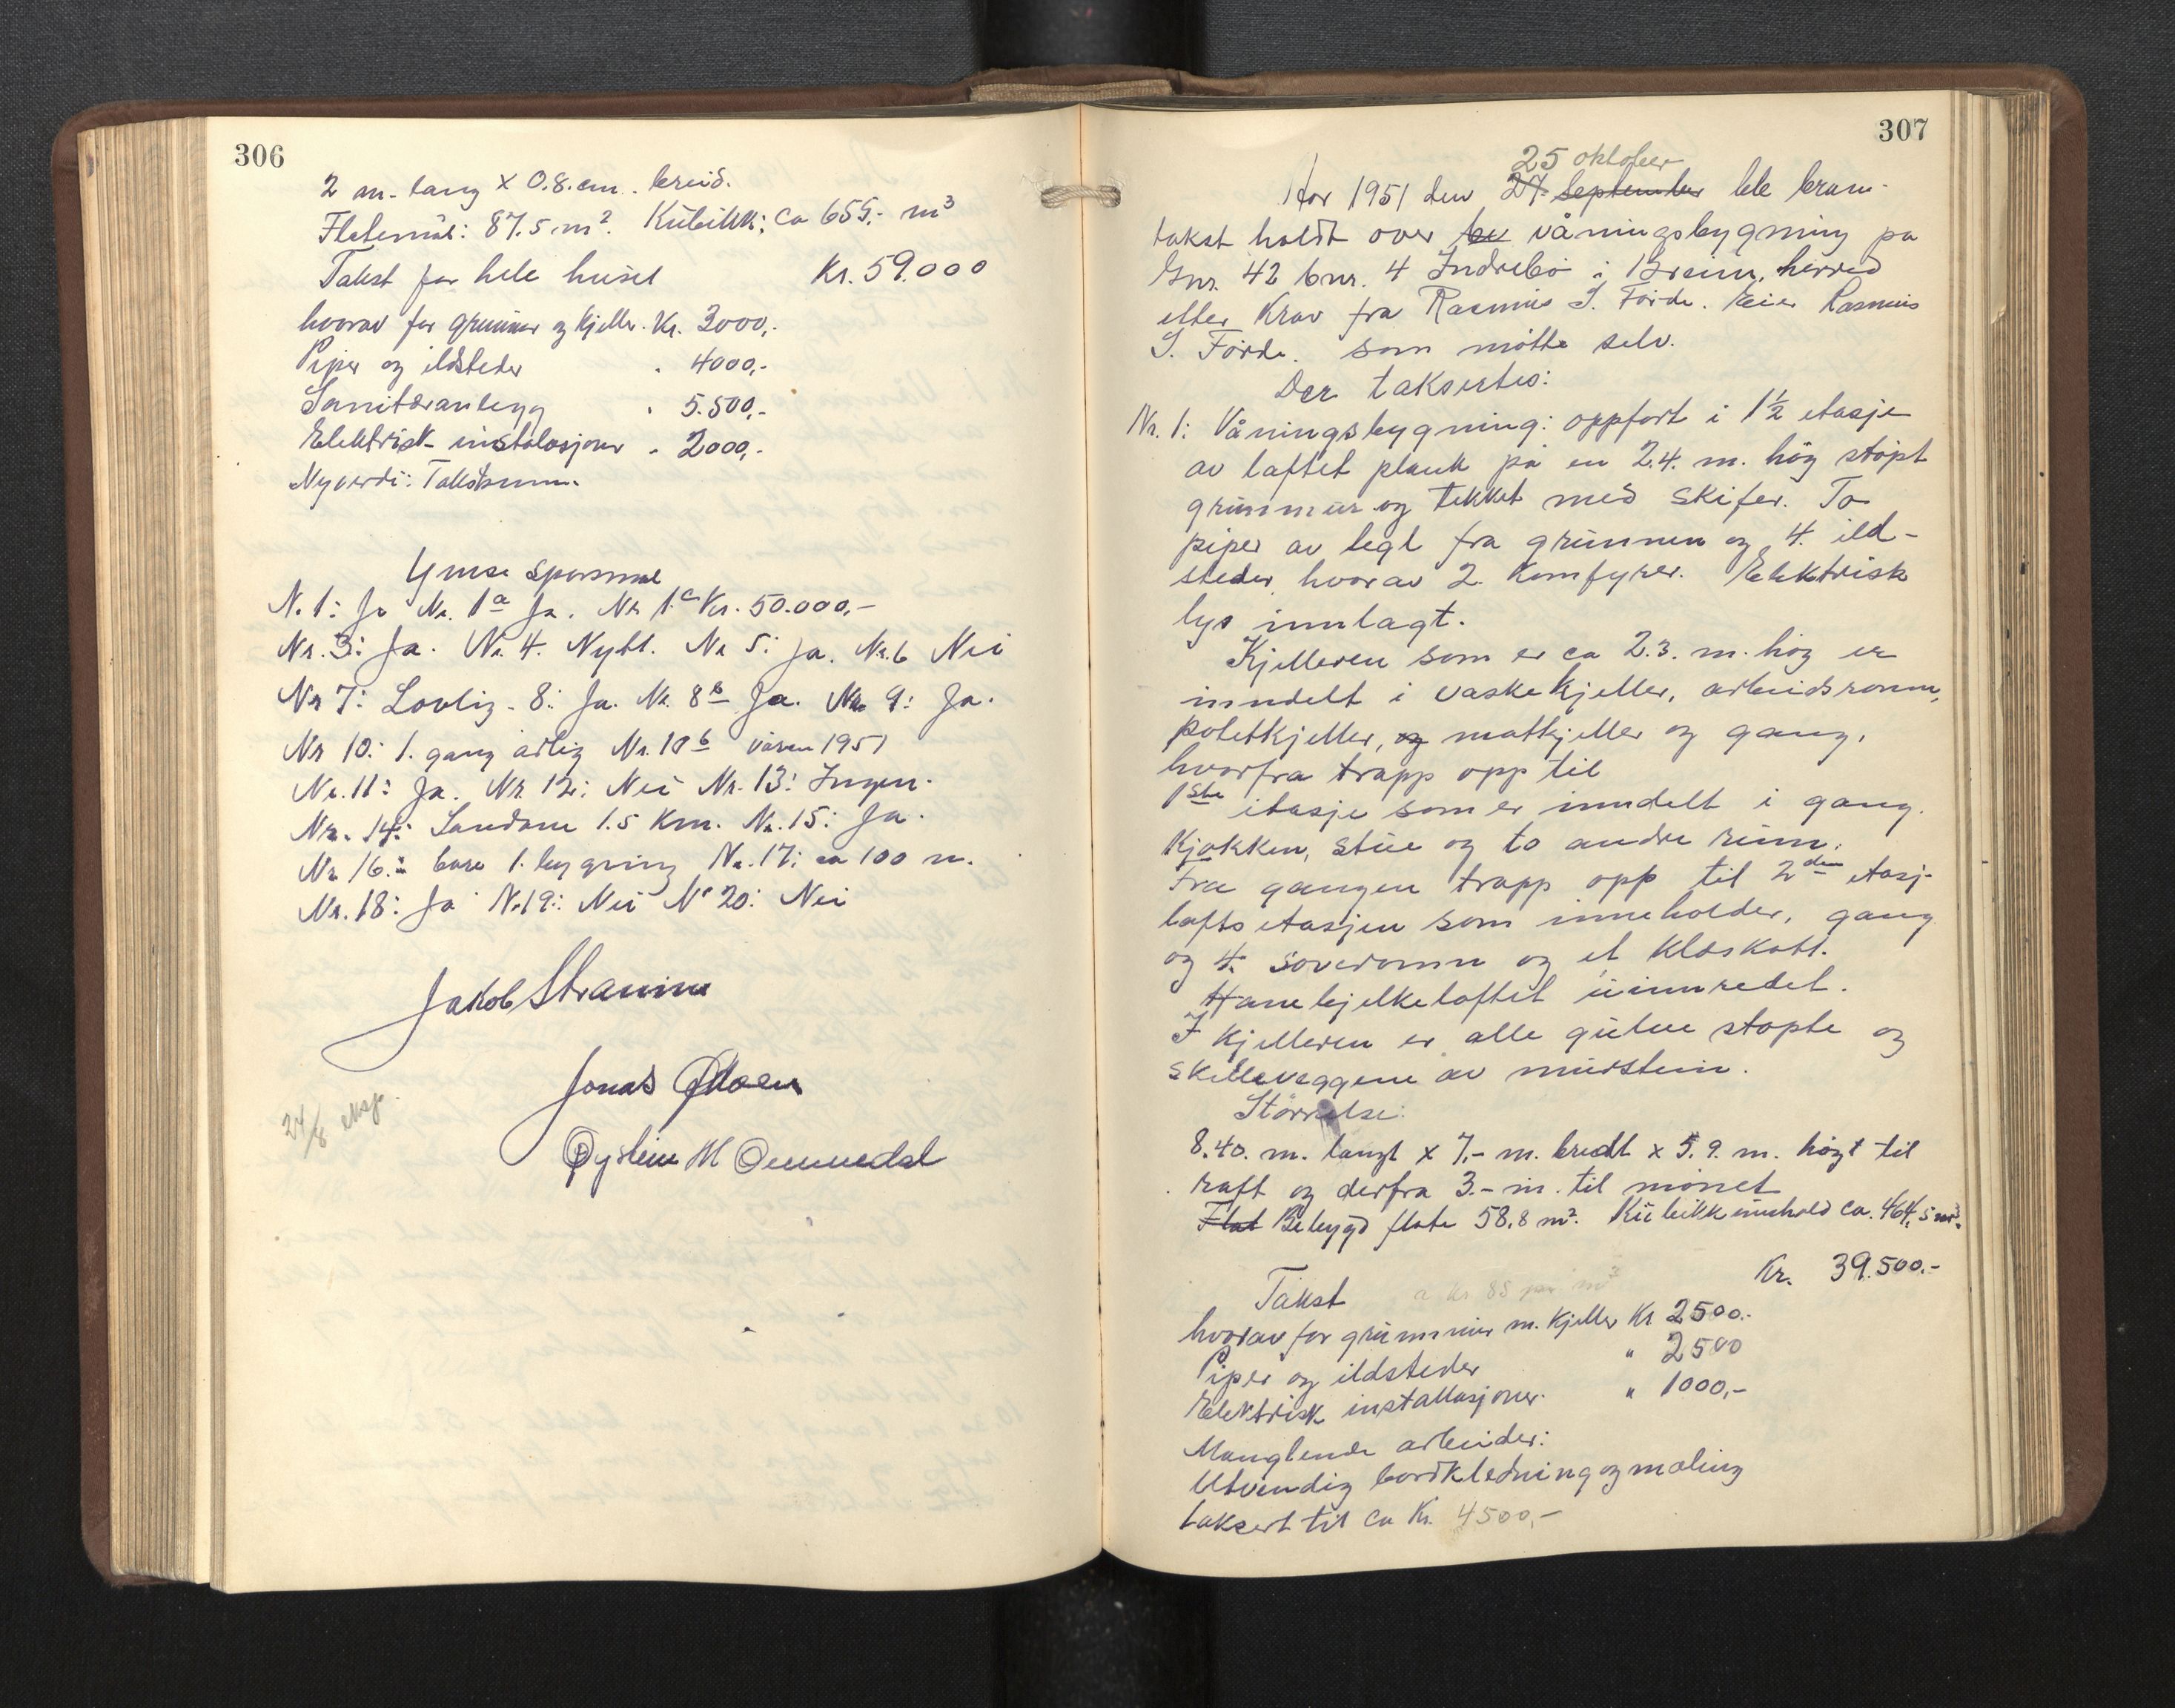 306
2 m. lang x 0.8. cm. breid.
Flatemål: 87.5 m². Kubikk: ca 655,- m³
Takst for hele huset Kr. 59.000
hvorav for grunnmur og kjeller. Kr. 3000,-
Piper og ildsteder " 4000,-
Sanitæranlegg " 5.500,-
Elektrisk instalasjoner " 2000,-
Nyverdi: Takstsum.
Ymse spørsmål
N. 1: Ja Nr. 1a Ja. Nr 1c Kr. 50.000,-
Nr. 3: Ja. Nr. 4. Nybl. Nr 5: Ja. Nr. 6 Nei
Nr 7: Lovlig. 8: Ja. Nr. 8b Ja. Nr. 9: Ja.
Nr 10: 1. gang årlig Nr. 10b våren 1951
Nr. 11: Ja. Nr 12: Nei Nr. 13: Ingen.
Nr. 14: Sandane 1.5 Km. Nr. 15: Ja.
Nr 16: bare 1. bygning Nr. 17: ca 100 m.
Nr. 18: Ja Nr 19: Nei Nr 20: Nei
Jakob
Jonas
24/8 eksp.
Øystein M
307
25 oktober
År 1951 den 27. September ble brann-
takst holdt over be våningsbygning på
Gnr. 42 bnr. 4 Indrebø i Breim, herred
etter Krav fra Rasmus I. Førde. Eier Rasmus
I. Førde. som møtte selv.
Der taksertes:
Nr. 1: Våningsbygning: oppført i 1½ etasje
av laftet plank på en 2.4. m. høg støpt
grunnmur og tekket med skifer. To
piper av tegl fra grunnen og 4. ild-
steder, hvorav 2. Komfyrer. Elektrisk
lys innlagt.
Kjelleren som er ca 2.3. m. høg er
inndelt i vaskekjeller, arbeidsromm,
potetkjeller, og matkjeller og gang,
hvorfra trapp opp til
1ste etasje som er inndelt i gang.
Kjøkken, stue og to andre rum.
Fra gangen trapp opp til 2den etasj-
loftsetasjen som inneholder, gang
og 4. soveromm og et kleskott.
Hanebjelkeloftet uinnredet.
I Kjelleren er alle gulve støpte og
skilleveggene av murstein.
Størrelse:
8.40. m. langt x 7,- m. bredt x 5.9. m. høgt til
raft og derfra 3.- m. til mønet
Flat Bebygd flate 58,8 m². Kubikkinnhold ca. 464,5 m³.
Takst a kr 85 pr m³ Kr. 39.500.-
hvorav for grunnmur m. Kjeller Kr 2500.-
Piper og ildsteder " 2500
Elektrisk installasjoner. " 1000,-
Manglende arbeider:
Utvendig bordkledning og maling
taksert til ca Kr. 4500,-